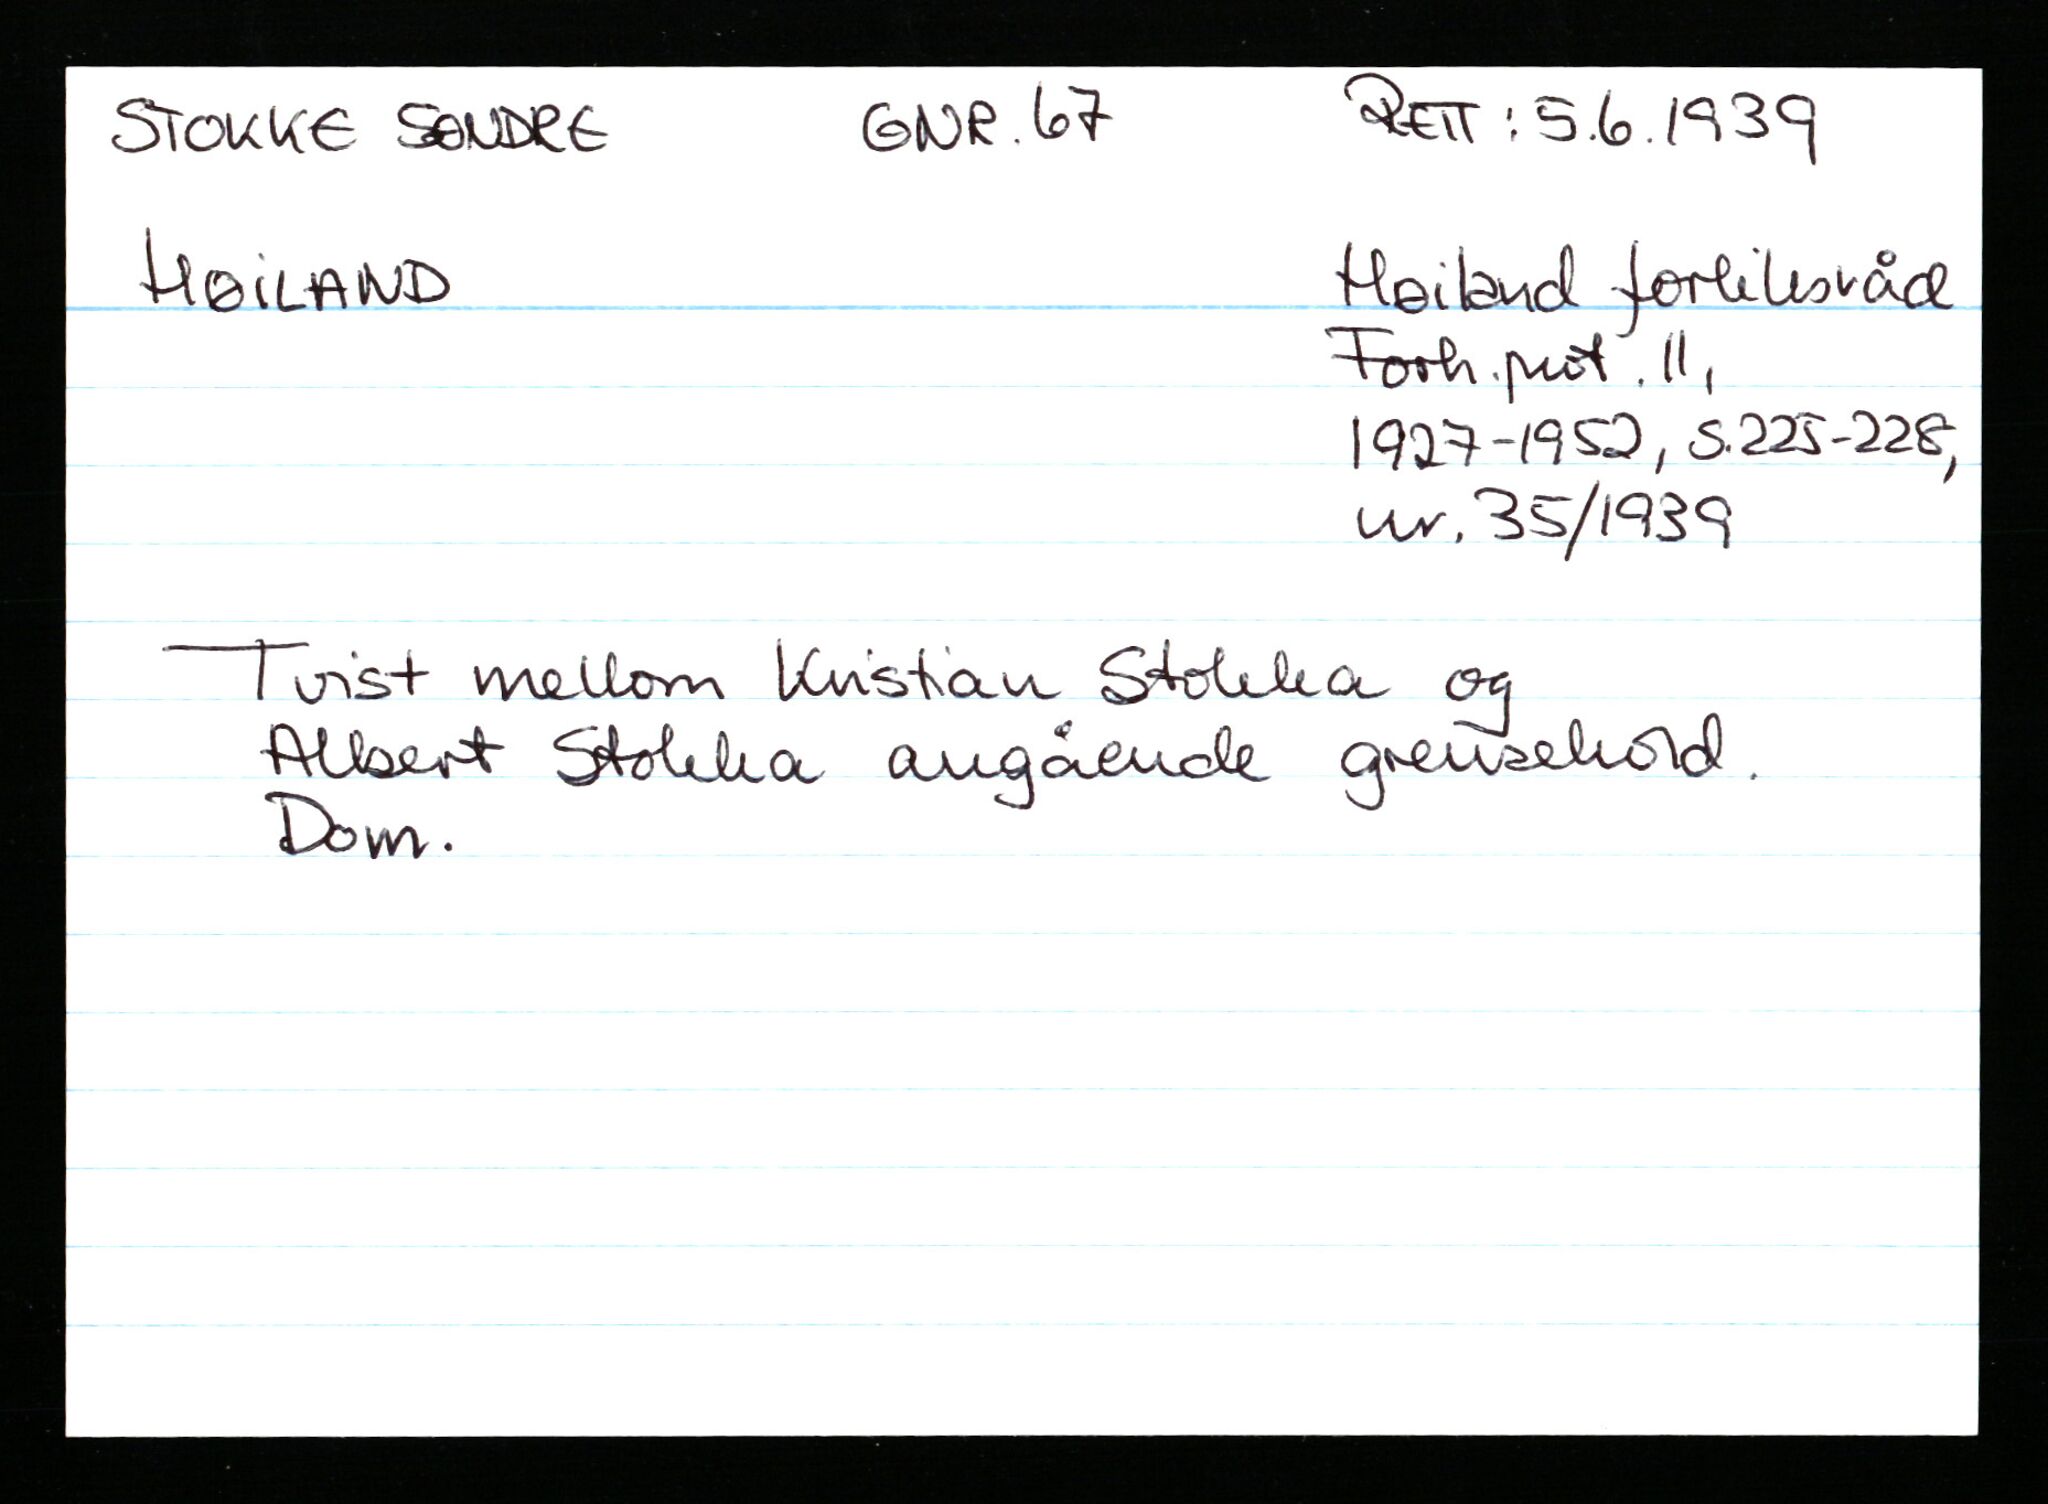 STOKKE SØNDRE GNR. 67 RETT: 5.6.1939
HØILAND Høiland forliksråd
Forh.prot. II,
1927-1952, s.225-228,
nr. 35/1939
Tvist mellom Kristian Stokka og
Albert Stokka angående grensehold.
Dom.